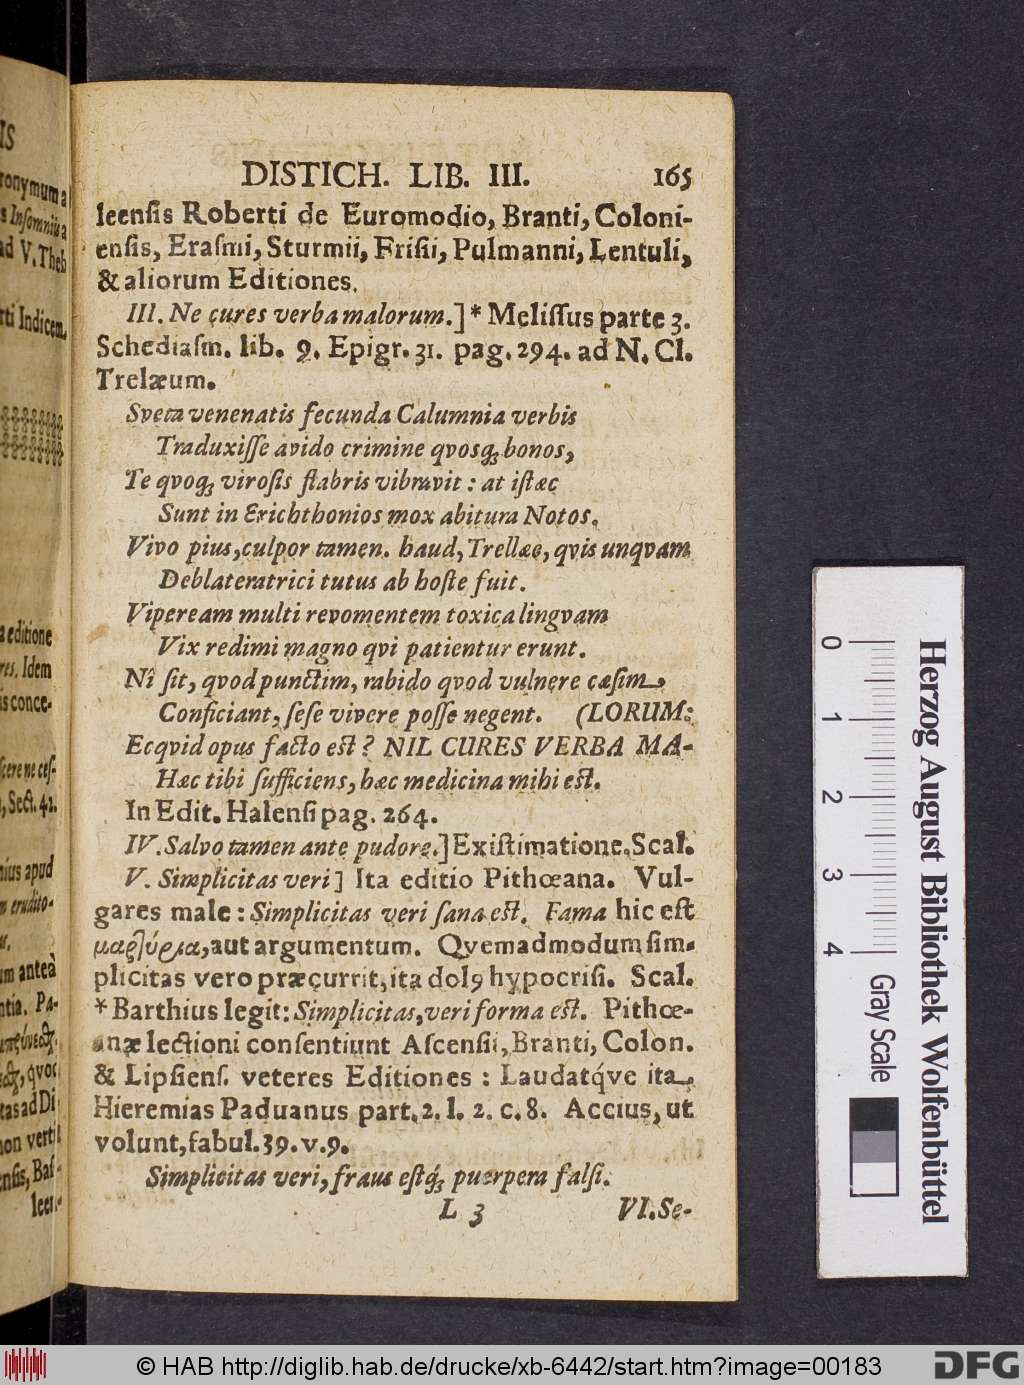 DISTICH. LIB. III. 165
leenſis Roberti de Euromodio, Branti, Coloni-
enſis, Eraſmi, Sturmii, Friſii, Pulmanni, Lentuli,
& aliorum Editiones.
III. Ne cures verba malorum.] * Meliſſus parte 3.
Schediaſm. lib. 9. Epigr. 31. pag. 294. ad N. Cl.
Trelæum.
Sveta venenatis fecunda Calumnia verbis
Traduxiſſe avido crimine qvosqꝫ bonos,
Te qvoqꝫ viroſis flabris vibravit : at iſtæc
Sunt in Erichthonios mox abitura Notos.
Vivo pius, culpor tamen. haud, Trellæe, qvis unqvam
Deblateratrici tutus ab hoſte fuit.
Vipeream multi revomentem toxica lingvam
Vix redimi magno qvi patientur erunt.
Nî ſit, qvod punctim, rabido qvod vulnere cæſim,
Conficiant, ſeſe vivere poſſe negent. (LORUM:
Ecqvid opus facto eſt ? NIL CURES VERBA MA-
Hæc tibi ſufficiens, hæc medicina mihi eſt.
In Edit. Halenſi pag. 264.
IV. Salvo tamen ante pudore.] Exiſtimatione. Scal.
V. Simplicitas veri] Ita editio Pithœana. Vul-
gares male : Simplicitas veri ſana eſt. Fama hic eſt
μαρτύρια, aut argumentum. Qvemadmodum ſim-
plicitas vero præcurrit, ita dolꝰ hypocriſi. Scal.
* Barthius legit: Simplicitas, veri forma eſt. Pithœ-
anæ lectioni conſentiunt Aſcenſii, Branti, Colon.
& Lipſienſ. veteres Editiones : Laudatq́ve ita
Hieremias Paduanus part. 2. l. 2. c. 8. Accius, ut
volunt, fabul. 39. v. 9.
Simplicitas veri, fraus eſtq́ꝫ puerpera falſi.
L 3 VI. Se-
IS
ronymum a
s Inſomniis a
ad V. Theb
rti Indicem.
a editione
res. Idem
is conce-
ſcere ne ceſ-
, Sect. 42.
nius apud
m erudito-
um anteà
ntia. Pa-
, qvoc
tas ad Di
non verti
enſis, Baſ-
leen-
0 1 2 3 4
Herzog August Bibliothek Wolfenbüttel
Gray Scale
© HAB http://diglib.hab.de/drucke/xb-6442/start.htm?image=00183
DFG